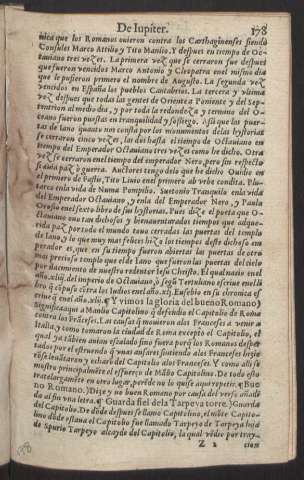 De Iupiter. 178
nica que los Romanos ouieron contra los Carthaginenses siendo
Consules Marco Attilio y Tito Manlio. Y despues en tiempo de Oc-
tauiano tres vezes. La primera vez que se cerraron fue despues
que fueron vencidos Marco Antonio y Cleopatra en el mismo dia
que le pusieron primero el nombre de Augusto. La segunda vez
vencidos en España los pueblos Cantabrios. La tercera y vltima
vez despues que todas las gentes de Oriente a Poniente y del Sep-
tentrion al medio dia, y por toda la redondeza y termino del O-
ceano fueron puestas en tranquilidad y sosiego. Assi que las puer-
tas de Iano quanto nos consta por los monumentos delas hystorias
se cerraron cinco vezes, las dos hasta el tiempo de Octauiano en
tiempo del Emperador Octauiano tres vezes como he dicho. Otra
vez se cerraron en el tiempo del emperador Nero, pero sin respecto
si auia paz o guerra. Auctores tengo delo que he dicho Ouidio en
el primero de fastis, Tito Liuio en el primero ab vrbe condita. Plu-
tarco enla vida de Numa Pompilio. Suetonio Tranquilo enla vida
del Emperador Octauiano, y enla del Emperador Nero, y Paula
Orosio enel sexto libro de sus hystorias. Pues dize el poeta que O-
ctauiano vuo tan dichosos y bienauenturados tiempos que adque-
rida paz por todo el mundo tuuo cerradas las puertas del templo
de Iano, y lo que muy mas felices hizo los tiempos deste dichoso em-
perador es que en su tiempo fueron abiertas las puertas de otro
mas precioso templo que el de Iano que fueron las puertas del cielo
por nacimento de nuestro redentor Iesu Christo. El qual nacio en el
año .xliij. del imperio de Octauiano, o segũ Tertuliano escriue enel li-
bro q̃ cõpuso cõtra los Iudios enel año .xlj. Eusebio en su chronica es
criue q̃ enel año .xlij. ¶ Y vimos la gloria del bueno Romano)
Significa aqui a Manlio Capitolino q̃ defendio el Capitolio de Roma
contra los Frãceses. Las causas q̃ mouieron alos Franceses a venir a
Italia, y como tomaron la ciudad de Roma excepto el Capitolio, el
qual ya tabien auian escalado sino fuera porq̃ los Romanos desper-
tados por el estruendo q̃ vnas ansares sintiendo alos Franceses hizie
rõ se leuãtaron y echarõ del Capitolio alos Franceses. Y como alli se
mostro principalmẽte el esfuerço de Mãlio Capitolino. De todo esto
tratè largamẽte en otro lugar, por esso no lo quise aqui repetir. ¶ Bue
no Romano.) Dize y no buen Romano por causa del verso añadiẽ
do al fin vna letra. ¶ Guarda fiel dela Tarpeya torre.) Guarda
del Capitolio. De dõde despues se llamo Capitolino, el mõte Capito-
lino dõde estaua el Capitolio fue llamado Tarpeyo de Tarpeya hija
de Spurio Tarpeyo alcayde del Capitolio, la qual vẽdio por tray-
Z 2 cion